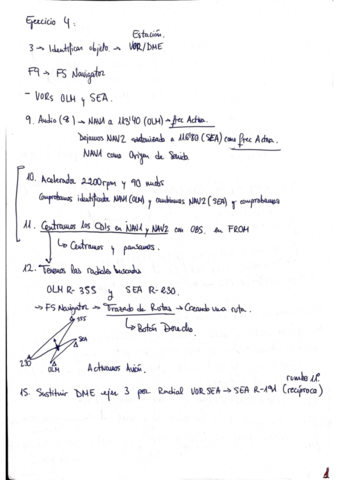 Ejercicio 4:
Estación.
3 → Identificar objeto → VOR/DME
F9 → FS Navigator
- VORs OLM y SEA.
9. Audio (8) → NAV1 a 113'40 (OLM) → frec Activa.
Dejamos NAV2 sintonizado a 116'80 (SEA) como frec Activa.
NAV1 como Origen de Sonido
10. Acelerador 2200 rpm y 90 nudos
Comprobamos identificador NAV1 (OLM) y cambiamos NAV2 (SEA) y comprobamos
11. Centramos los CDIs en NAV1 y NAV2 con OBS. en FROM
↳ Centramos y pausamos.
12. Tenemos las radiales buscadas
OLM R-355 y SEA R-230.
→ FS Navigator → Trazado de Rutas → Creando una ruta.
↳ Botón Derecho
355
SEA
230
OLM
Activamos Avión.
rumbo 11º
15. Sustituir DME ejer 3 por Radial VOR SEA → SEA R-191 (recíproca)
1